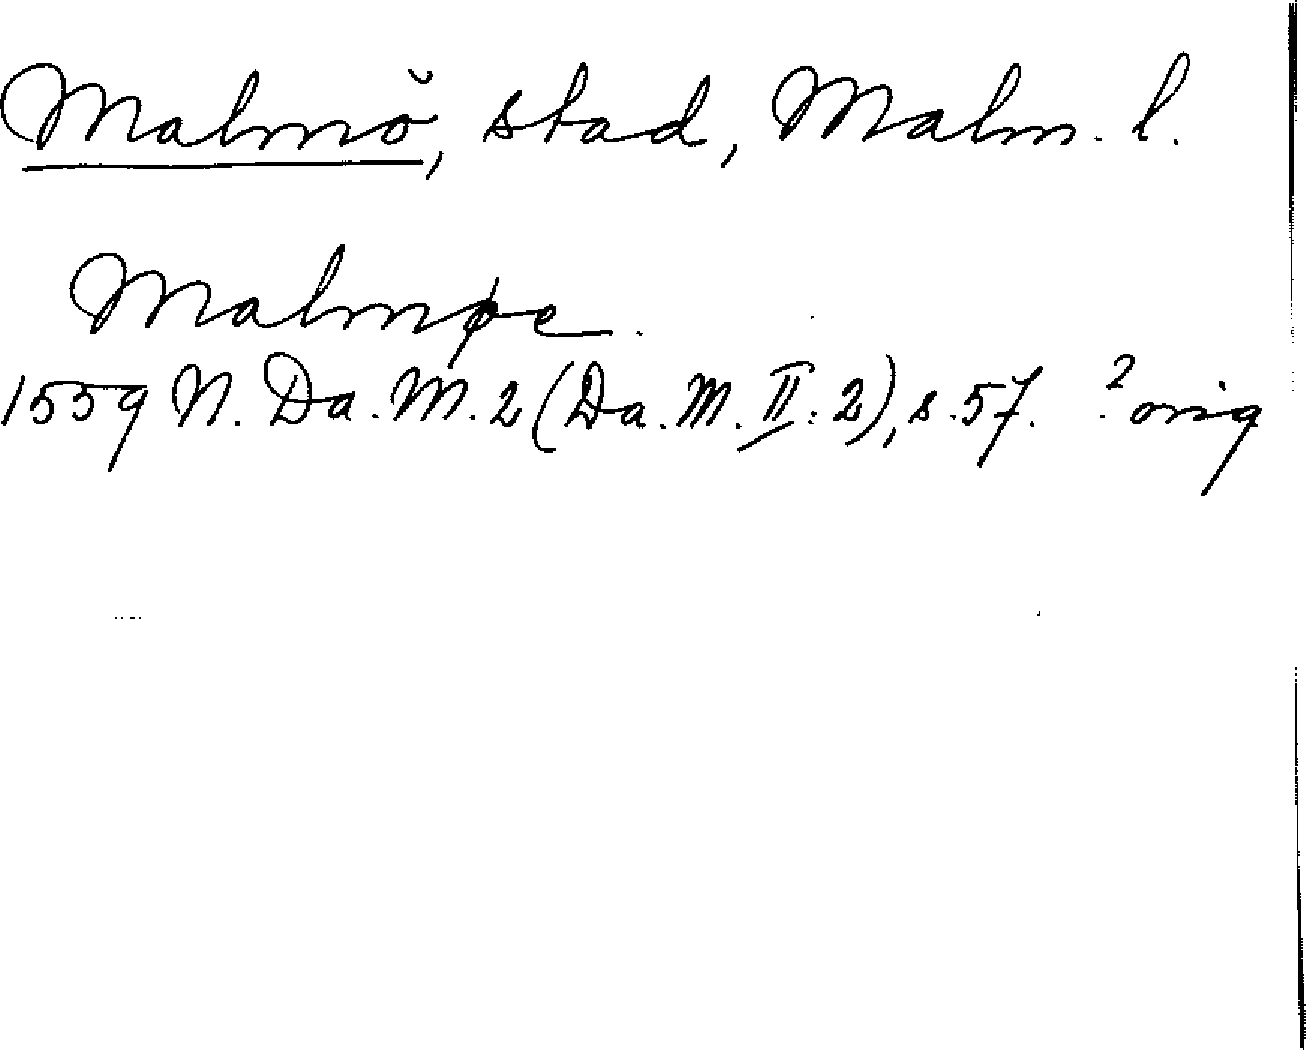 Malmö, stad, Malm. l.
Malmøe.
1559 N. Da. M. 2 (Da. M. II: 2), s. 57. ? orig